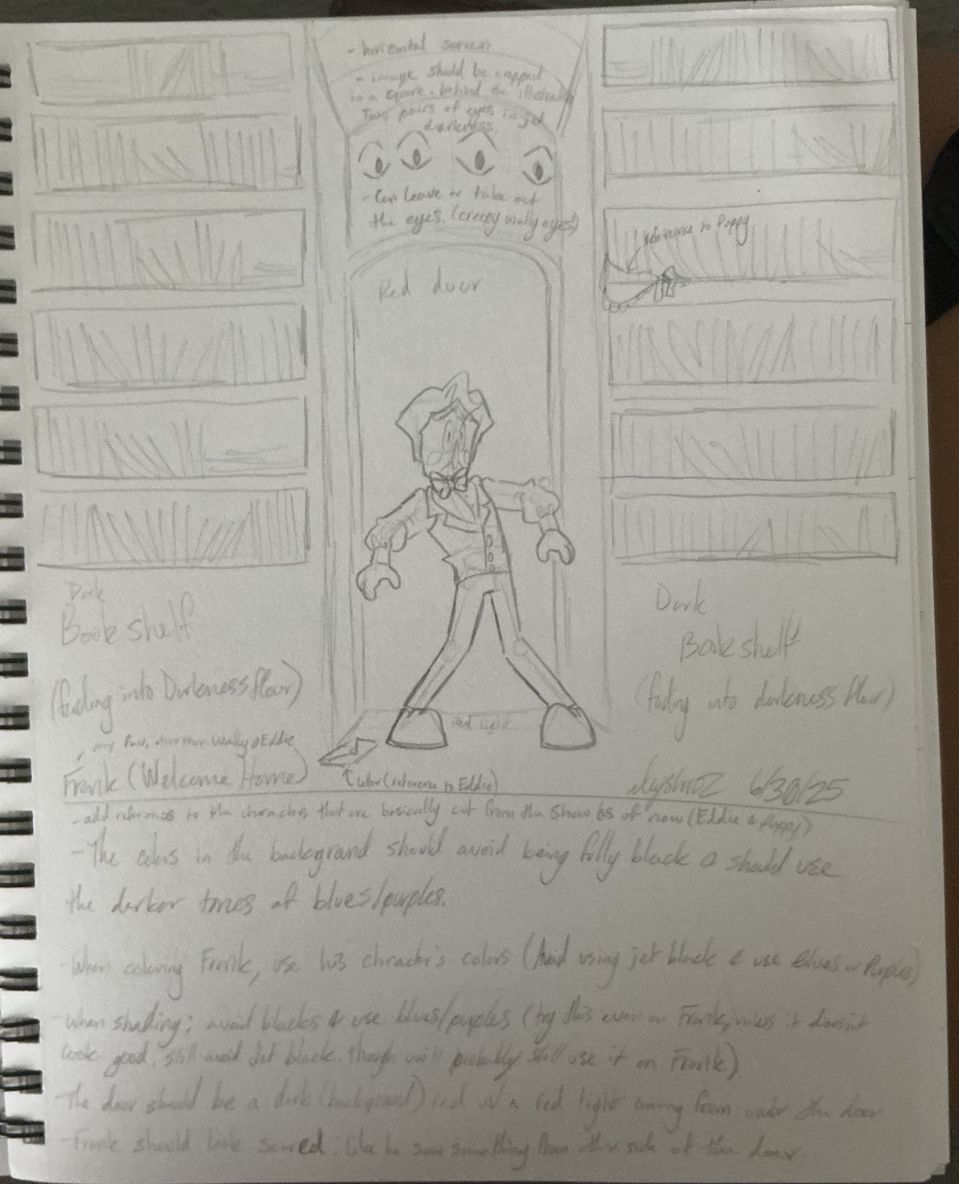 - horizontal screen
- image should be cropped
in a square. behind the illustration
Two pairs of eyes in jet
darkness
- Can leave or take out
the eyes. (creepy wally eyes)
reference to Poppy
Red door
Dark
Book shelf
(fading into Darkness floor)
Dark
Book shelf
(fading into darkness floor)
red light
my fav, Wally & Eddie
Frank (Welcome Home)
↑ letter (reference to Eddie)
6/30/25
- add references to the characters that are basically cut from the show as of now (Eddie & Poppy)
- The colors in the background should avoid being fully black & should use
the darker tones of blues/purples.
- When coloring Frank, use his character's colors (Avoid using jet black & use Blues or Purples)
- When shading; avoid blacks & use blues/purples (try this even on Frank, unless it doesn't
look good. still avoid Jet black. Though will probably still use it on Frank)
- The door should be a dark (background) red w/ a red light coming from under the door
- Frank should look scared. Like he saw something from other side of the door